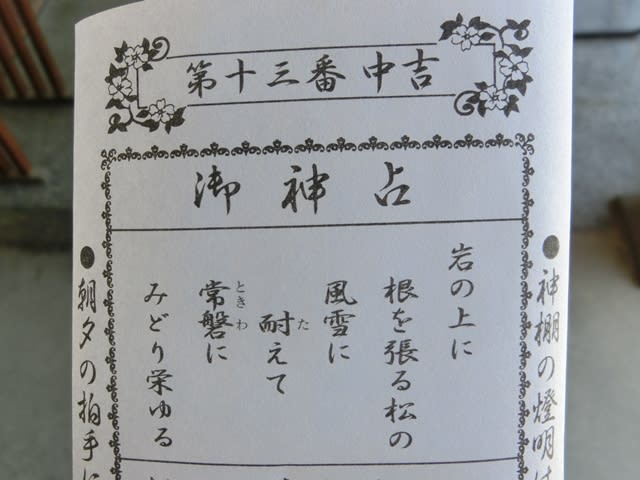 第十三番 中吉
御神占
●神棚の燈明は
岩の上に
根を張る松の
風雪に
耐えて
た
常磐に
ときわ
みどり栄ゆる
●朝夕の拍手に